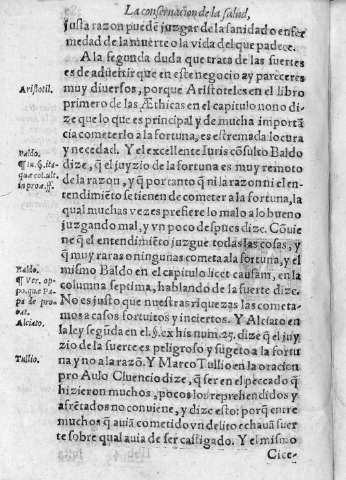 La conseruacion de la salud,
justa razon puedẽ juzgar de la sanidad o enfer
medad de la muerte o la vida del que padece.
A la segunda duda que trata de las suertes
es de aduertir que en este negocio ay pareceres
Aristotil.
muy diuersos, porque Aristoteles en el libro
primero de las Æthicas en el capitulo nono di-
ze que lo que es principal y de mucha importã
cia cometerlo a la fortuna, es estremada locura
Baldo.
y necedad. Y el excellente Juris cõsulto Baldo
dize, q̃ el juyzio de la fortuna es muy remoto
de la razon, y q̃ portanto q̃ ni la razon ni el en-
tendimiẽto se tienen de cometer a la fortuna, la
qual muchas vezes prefiere lo malo a lo bueno
juzgando mal, y vn poco despues dize. Cõuie
ne q̃ el entendimiẽto juzgue todas las cosas, y
q̃ muy raras o ningunas cometa ala fortuna, y el
Baldo.
mismo Baldo en el capitulo licet causam, en la
columna septima, hablando de la suerte dize.
No es justo que nuestras riquezas las cometa-
mos a casos fortuitos y inciertos. Y Alciato en
Alciato.
la ley segũda en el §. ex his num. 27. dize q̃ el juy
zio de la suerte es peligroso y sugeto a la fortu
Tullio.
na y no a la razõ. Y Marco Tullio en la oracion
pro Aulo Cluencio dize, q̃ ser en el peccado q̃
hizieron muchos, pocos los reprehendidos y
afrẽtados no conuiene, y dize esto: porq̃ entre
muchos q̃ auiã cometido vn delito echauã suer
te sobre qual auia de ser castigado. Y el mismo
Cice-